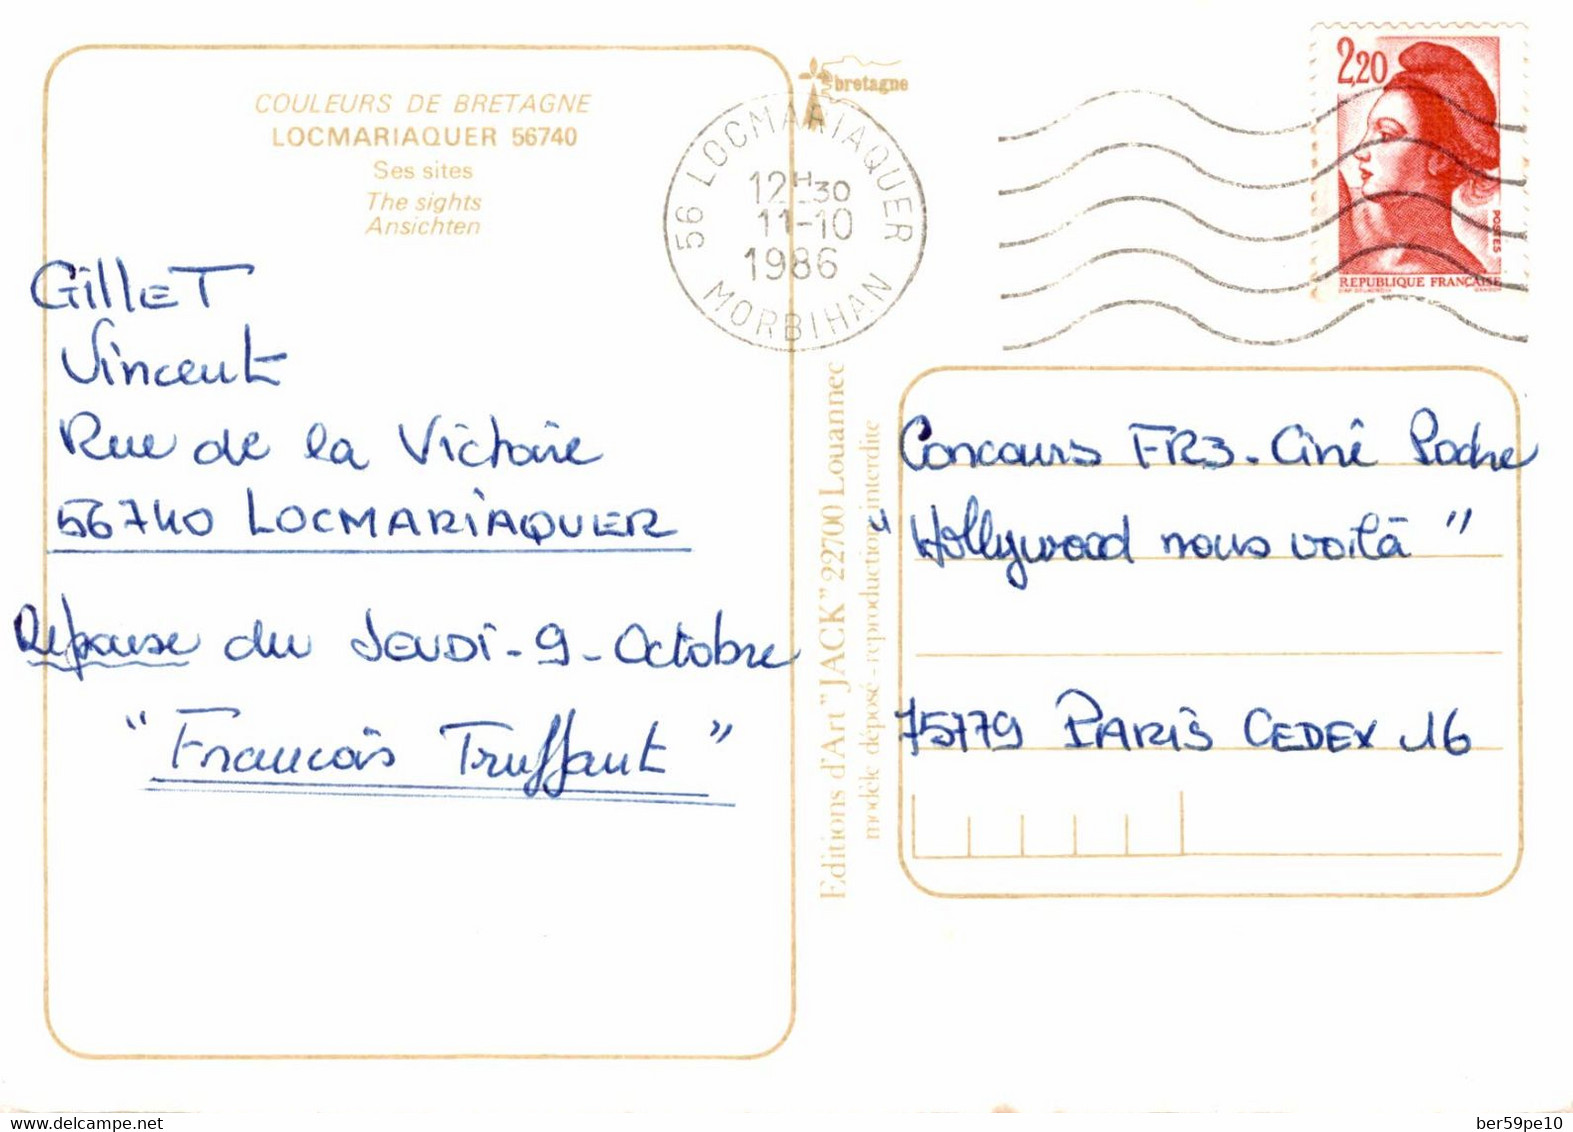 COULEURS DE BRETAGNE
LOCMARIAQUER 56740
Ses sites
The sights
Ansichten
GilleT
Vincent
Rue de la Victoire
56740 LOCMARiAQUER
Réponse du JEUDi-9-Octobre
"Francois Truffaut"
bretagne
56 LOCMARIAQUER
12H30
11-10
1986
MORBIHAN
2,20
POSTES
REPUBLIQUE FRANÇAISE
Editions d'Art "JACK" 22700 Louannec
modèle déposé - reproduction interdite
Concours FR3-Ciné Poche
"Hollywood nous voilà"
75779 PARiS CEDEX 16
www.delcampe.net
ber59pe10